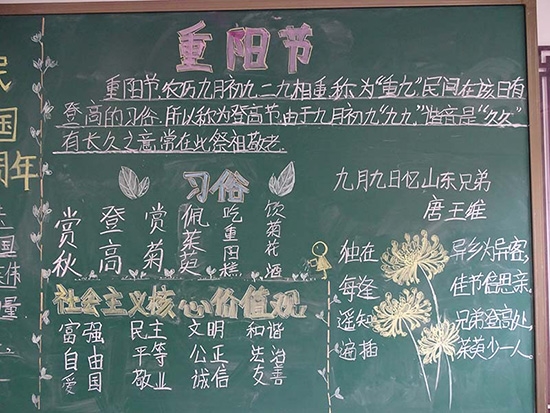 民
国
周年
国
量
重阳节
重阳节,农历九月初九,二九相重,称为"重九",民间在该日有
登高的习俗,所以称为登高节.由于九月初九"九九,"谐音是"久久"
有长久之意常在此祭祖敬老.
习俗
赏秋
登高
赏菊
佩茱萸
吃重阳糕
饮菊花酒
社会主义核心价值观
富强 民主 文明 和谐
自由 平等 公正 法治
爱国 敬业 诚信 友善
九月九日忆山东兄弟
唐王维
独在异乡为异客,
每逢佳节倍思亲.
遥知兄弟登高处,
遍插茱萸少一人.